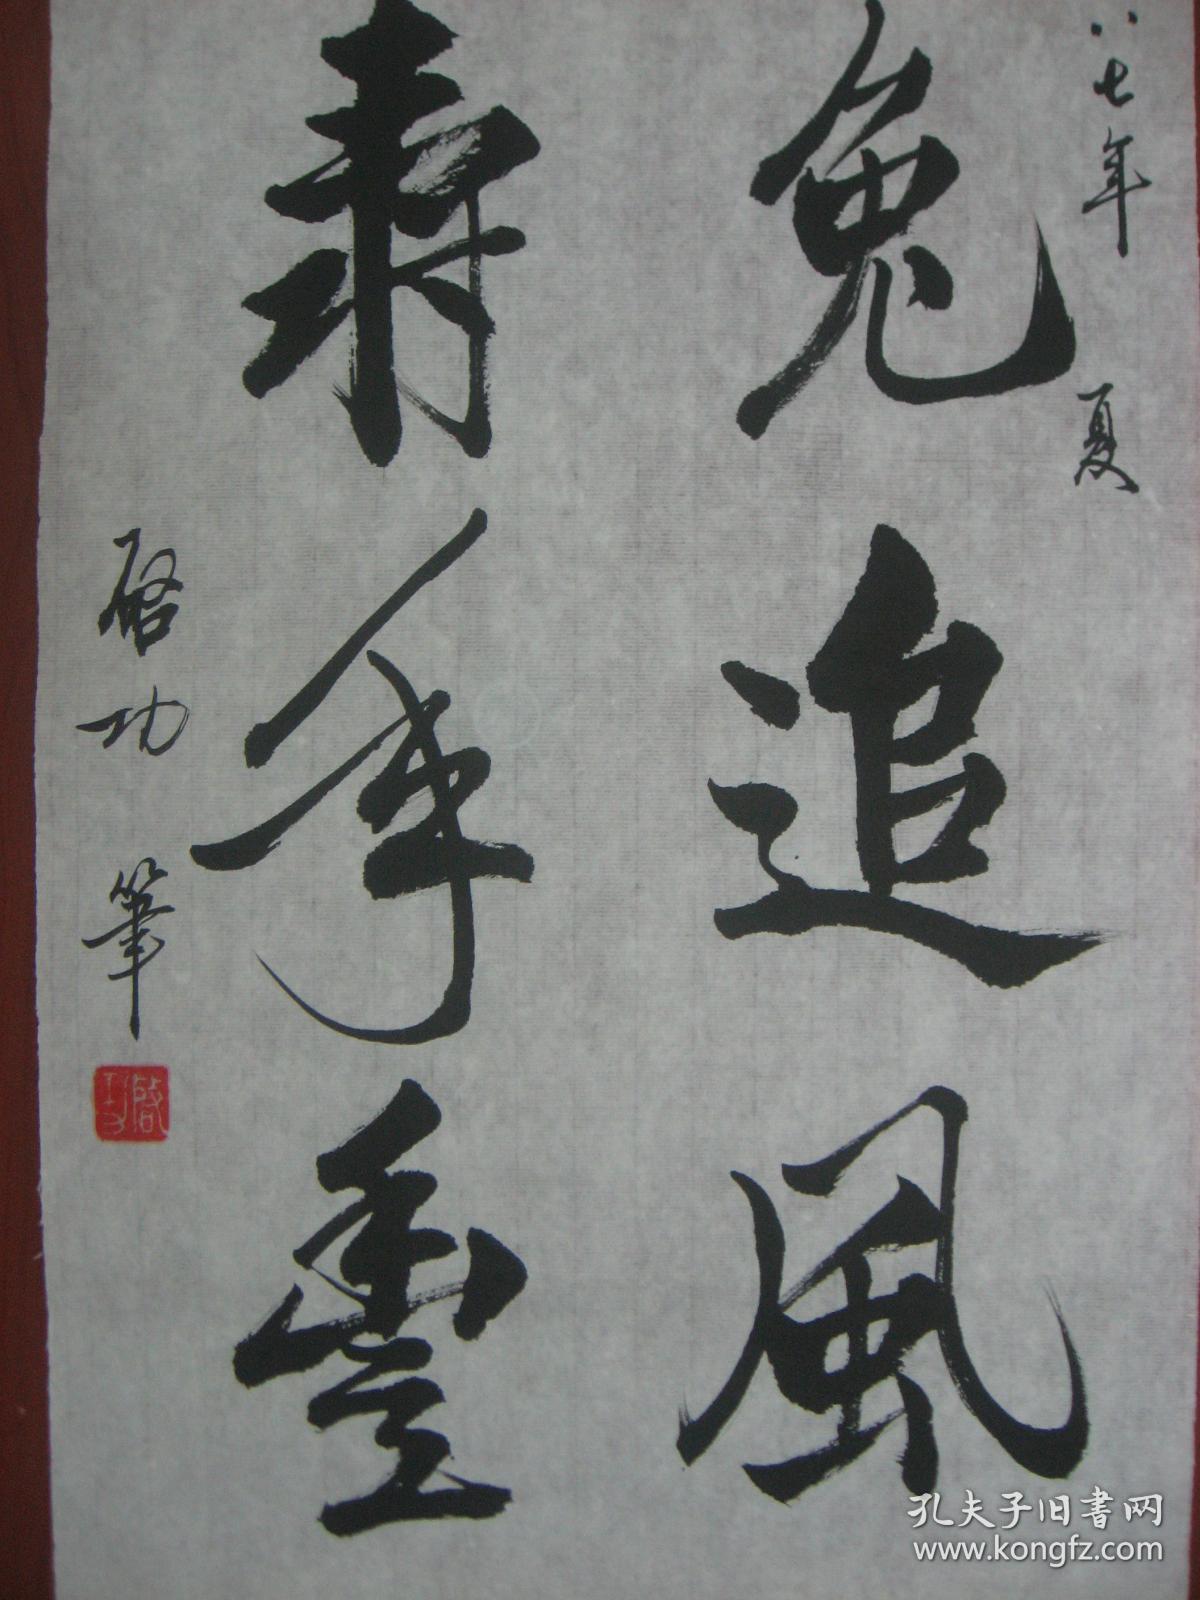 八七年 夏
兔追風
壽年豐
啓功筆
啓功
孔夫子旧书网
www.kongfz.com